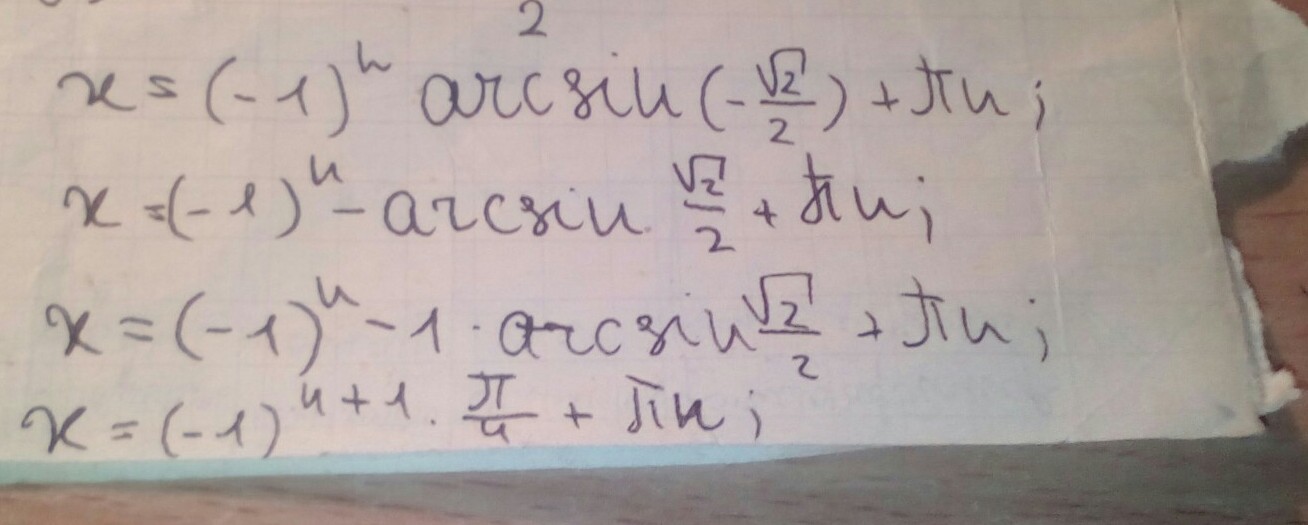 2
x = (-1)ⁿ arcsin (-√2/2) + πn;
x = (-1)ⁿ - arcsin √2/2 + πn;
x = (-1)ⁿ - 1 · arcsin √2/2 + πn;
x = (-1)ⁿ⁺¹ · π/4 + πn;